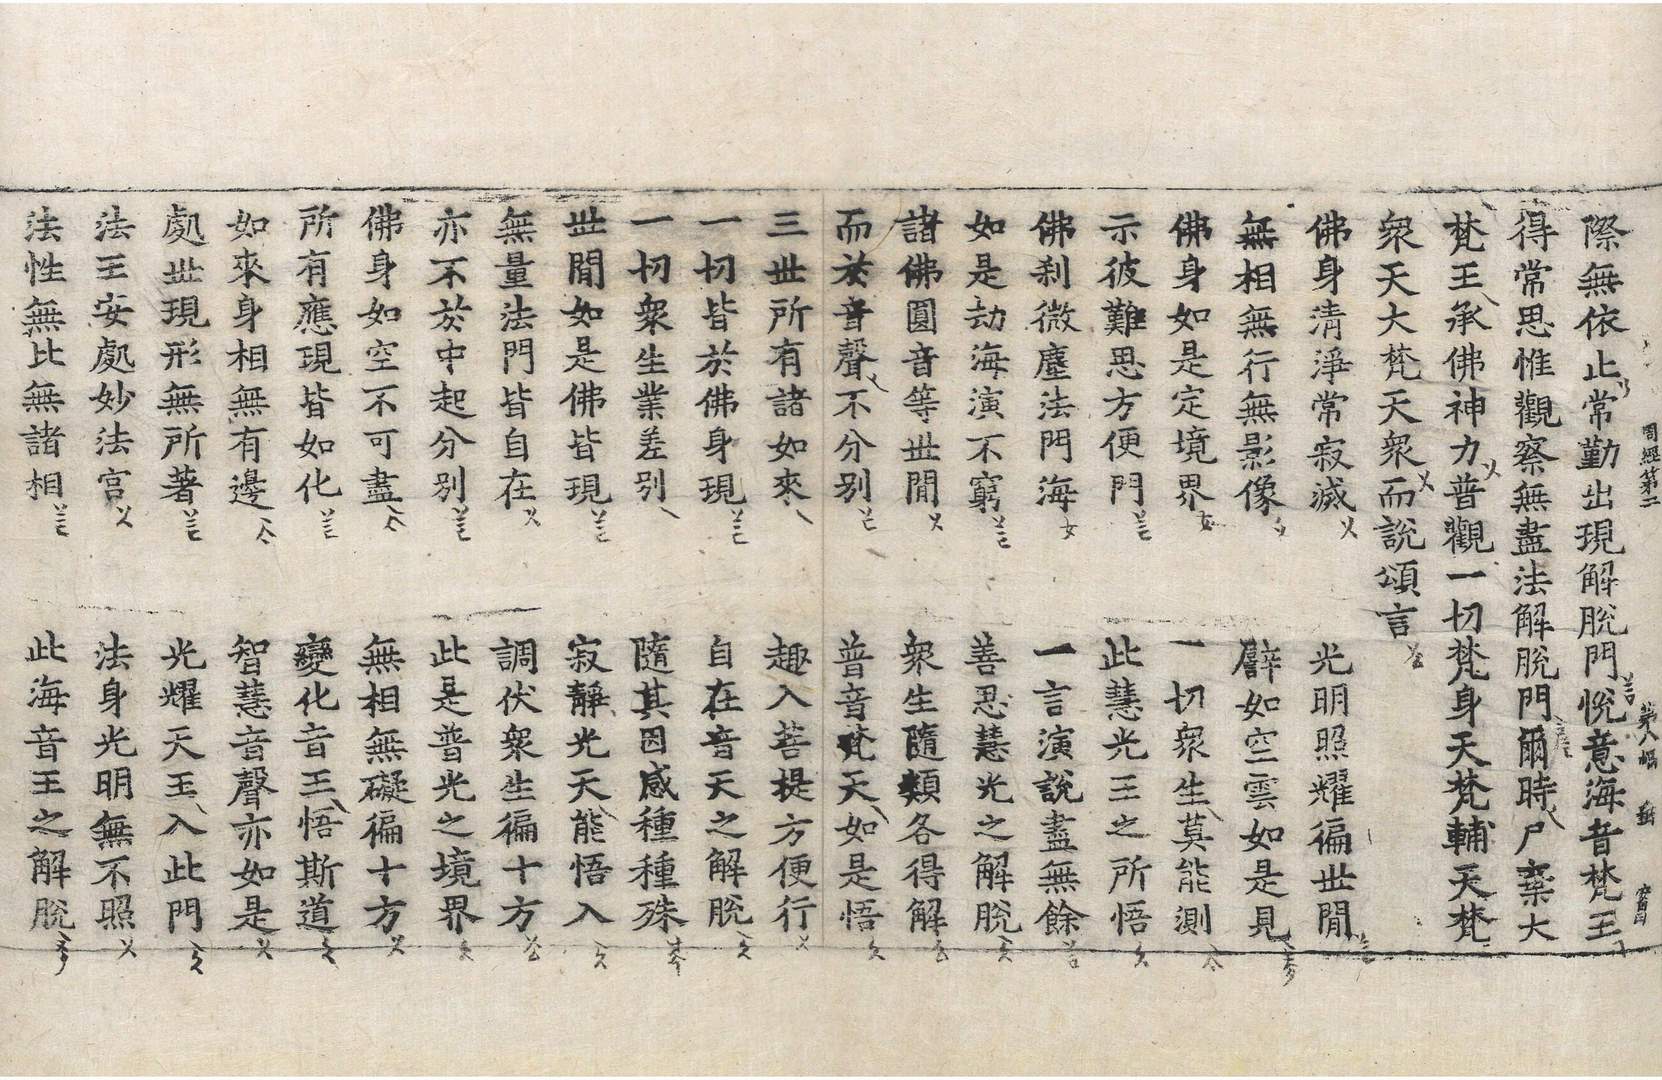 際無依止常勤出現解脫門悅意海音梵王
得常思惟觀察無盡法解脫門爾時尸棄大
梵王承佛神力普觀一切梵身天梵輔天梵
衆天大梵天衆而說頌言
佛身淸淨常寂滅 光明照耀徧世間
無相無行無影像 譬如空雲如是見
佛身如是定境界 一切衆生莫能測
示彼難思方便門 此慧光王之所悟
佛刹微塵法門海 一言演說盡無餘
如是劫海演不窮 善思慧光之解脫
諸佛圓音等世間 衆生隨類各得解
而於音聲不分別 普音梵天如是悟
三世所有諸如來 趣入菩提方便行
一切皆於佛身現 自在音天之解脫
一切衆生業差別 隨其因感種種殊
世間如是佛皆現 寂靜光天能悟入
無量法門皆自在 調伏衆生徧十方
亦不於中起分別 此是普光之境界
佛身如空不可盡 無相無礙徧十方
所有應現皆如化 變化音王悟斯道
如來身相無有邊 智慧音聲亦如是
處世現形無所著 光耀天王入此門
法王安處妙法宮 法身光明無不照
法性無比無諸相 此海音王之解脫